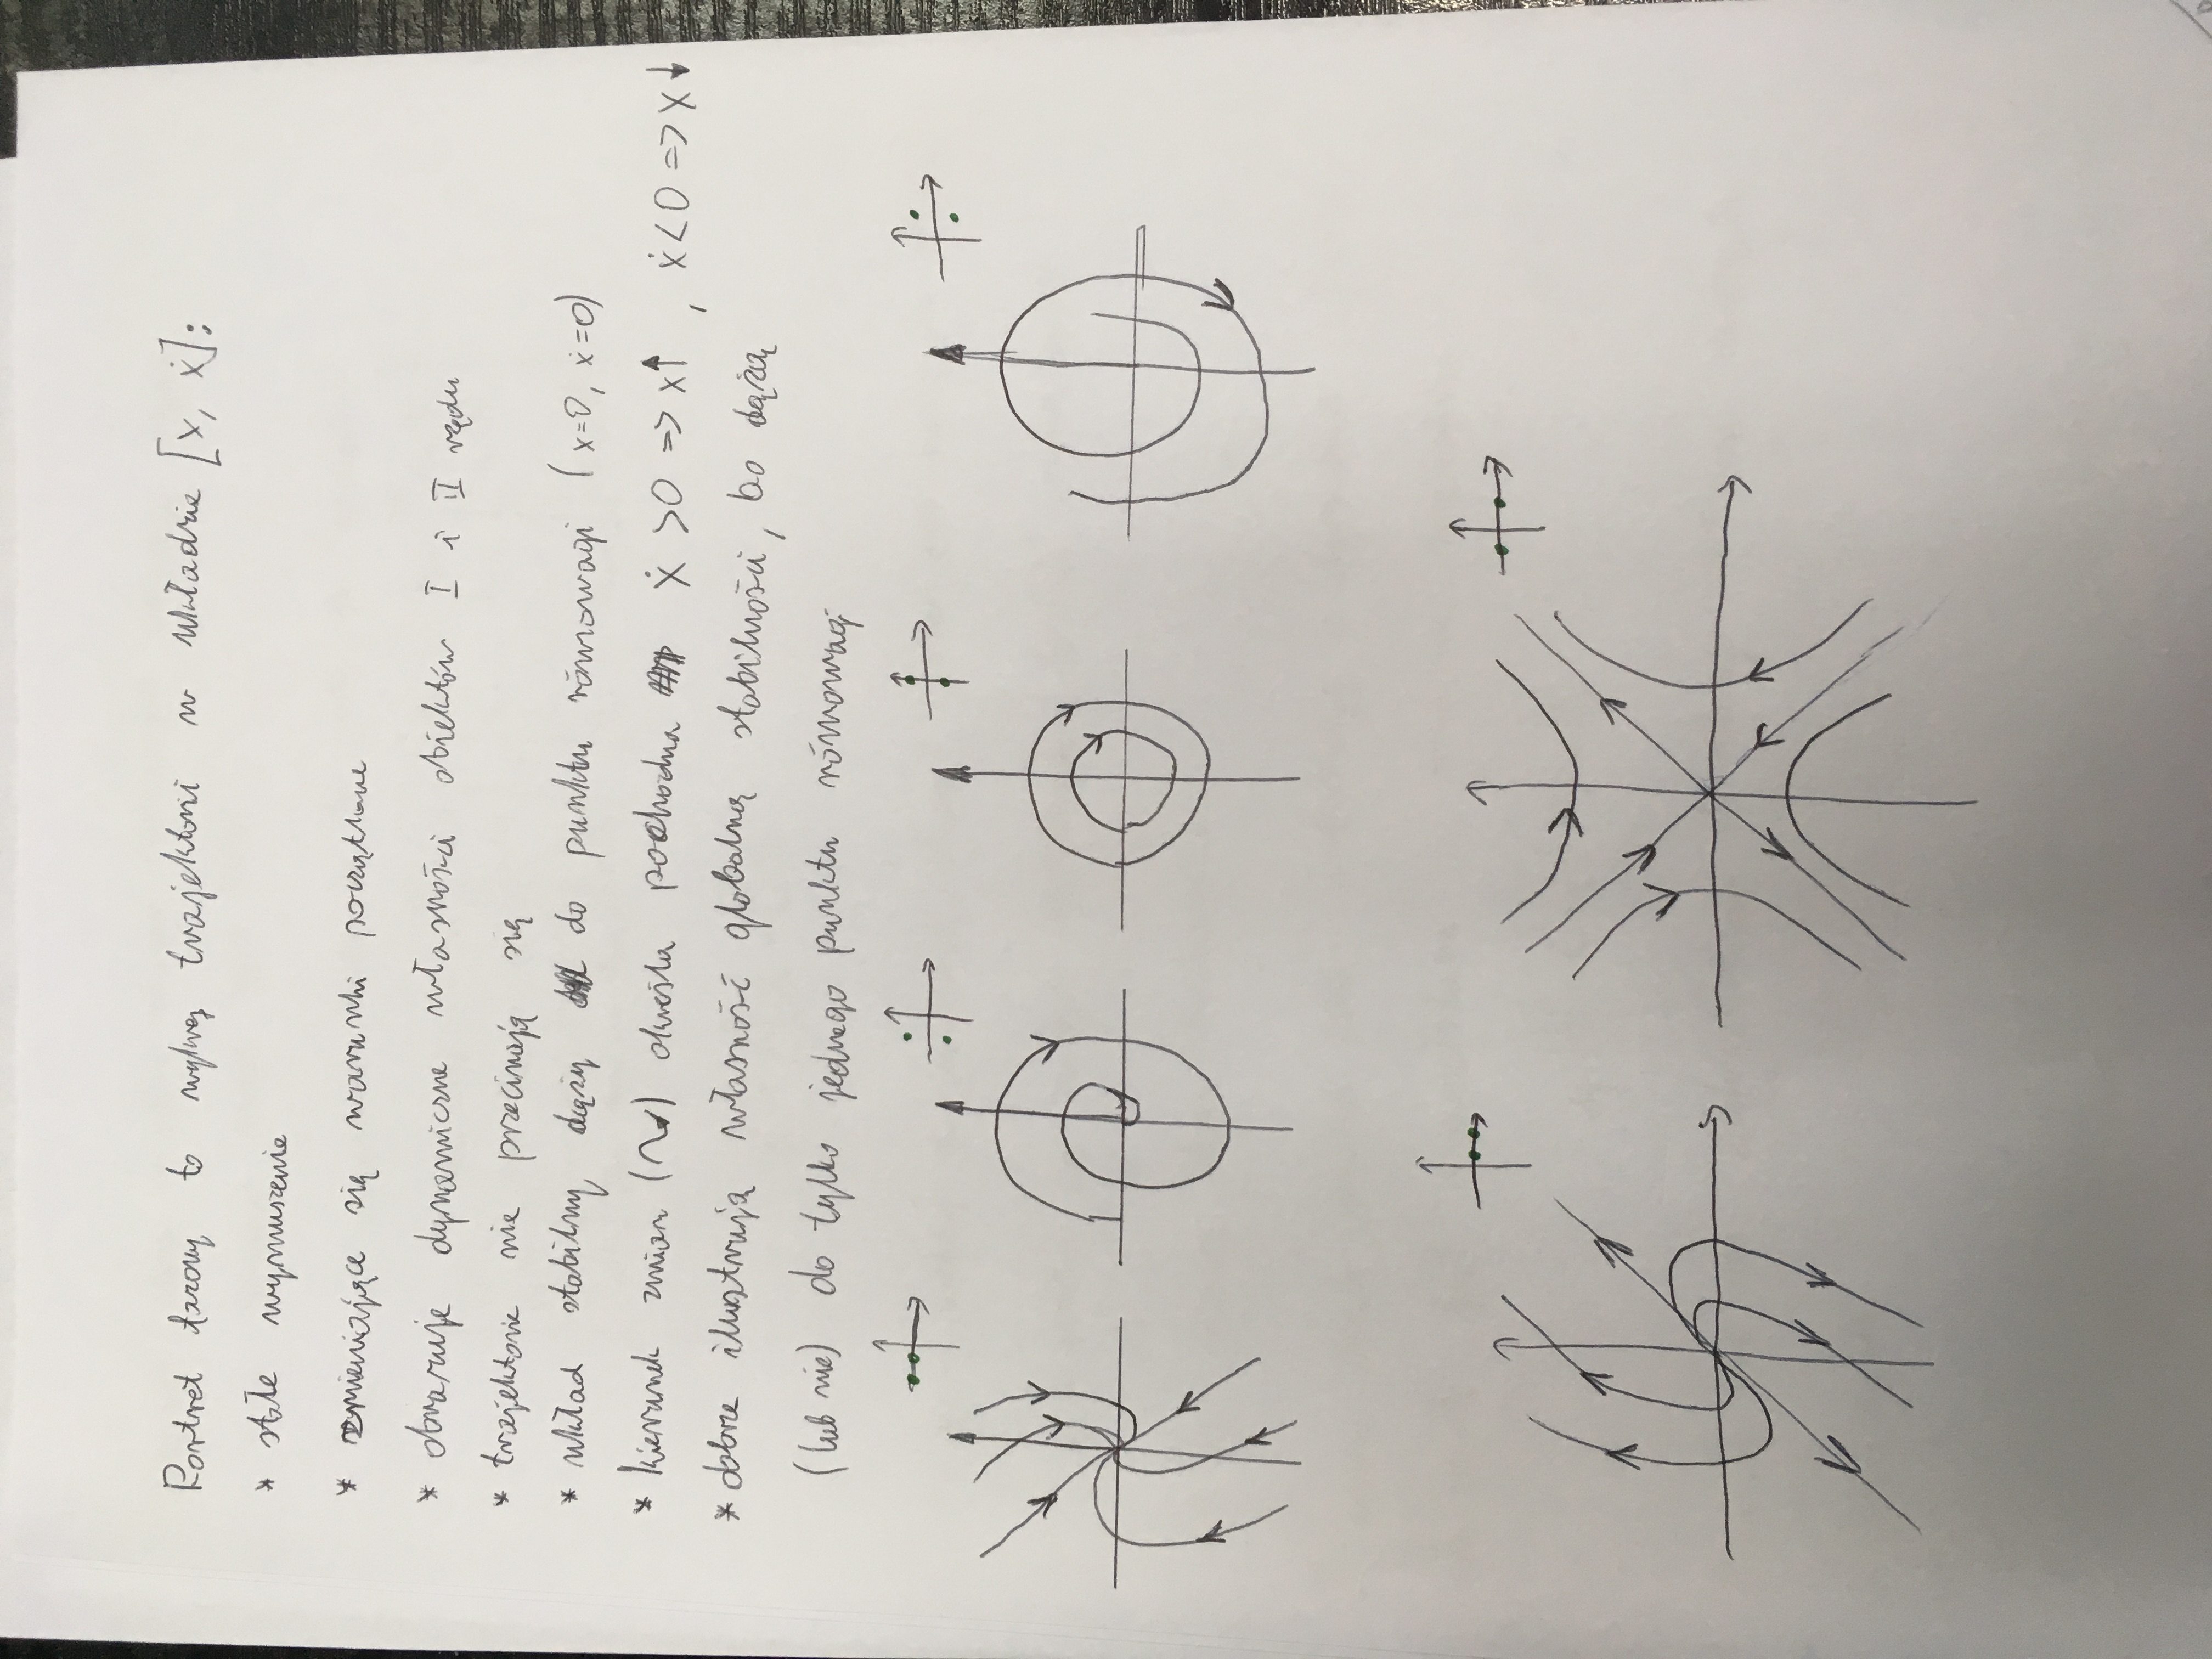 Portret fazowy to wykres trajektorii w układzie [x, ẋ]:
* stałe wymuszenie
* zmieniające się warunki początkowe
* obrazuje dynamiczne własności obiektów I i II rzędu
* trajektorie nie przecinają się
* układ stabilny dąży do punktu równowagi (x=0, ẋ=0)
* kierunek zmian (↝) określa pochodna ẋ >0 => x↑, ẋ<0 => x↓
* dobrze ilustrują własność globalną stabilności, bo dążą
(lub nie) do tylko jednego punktu równowagi